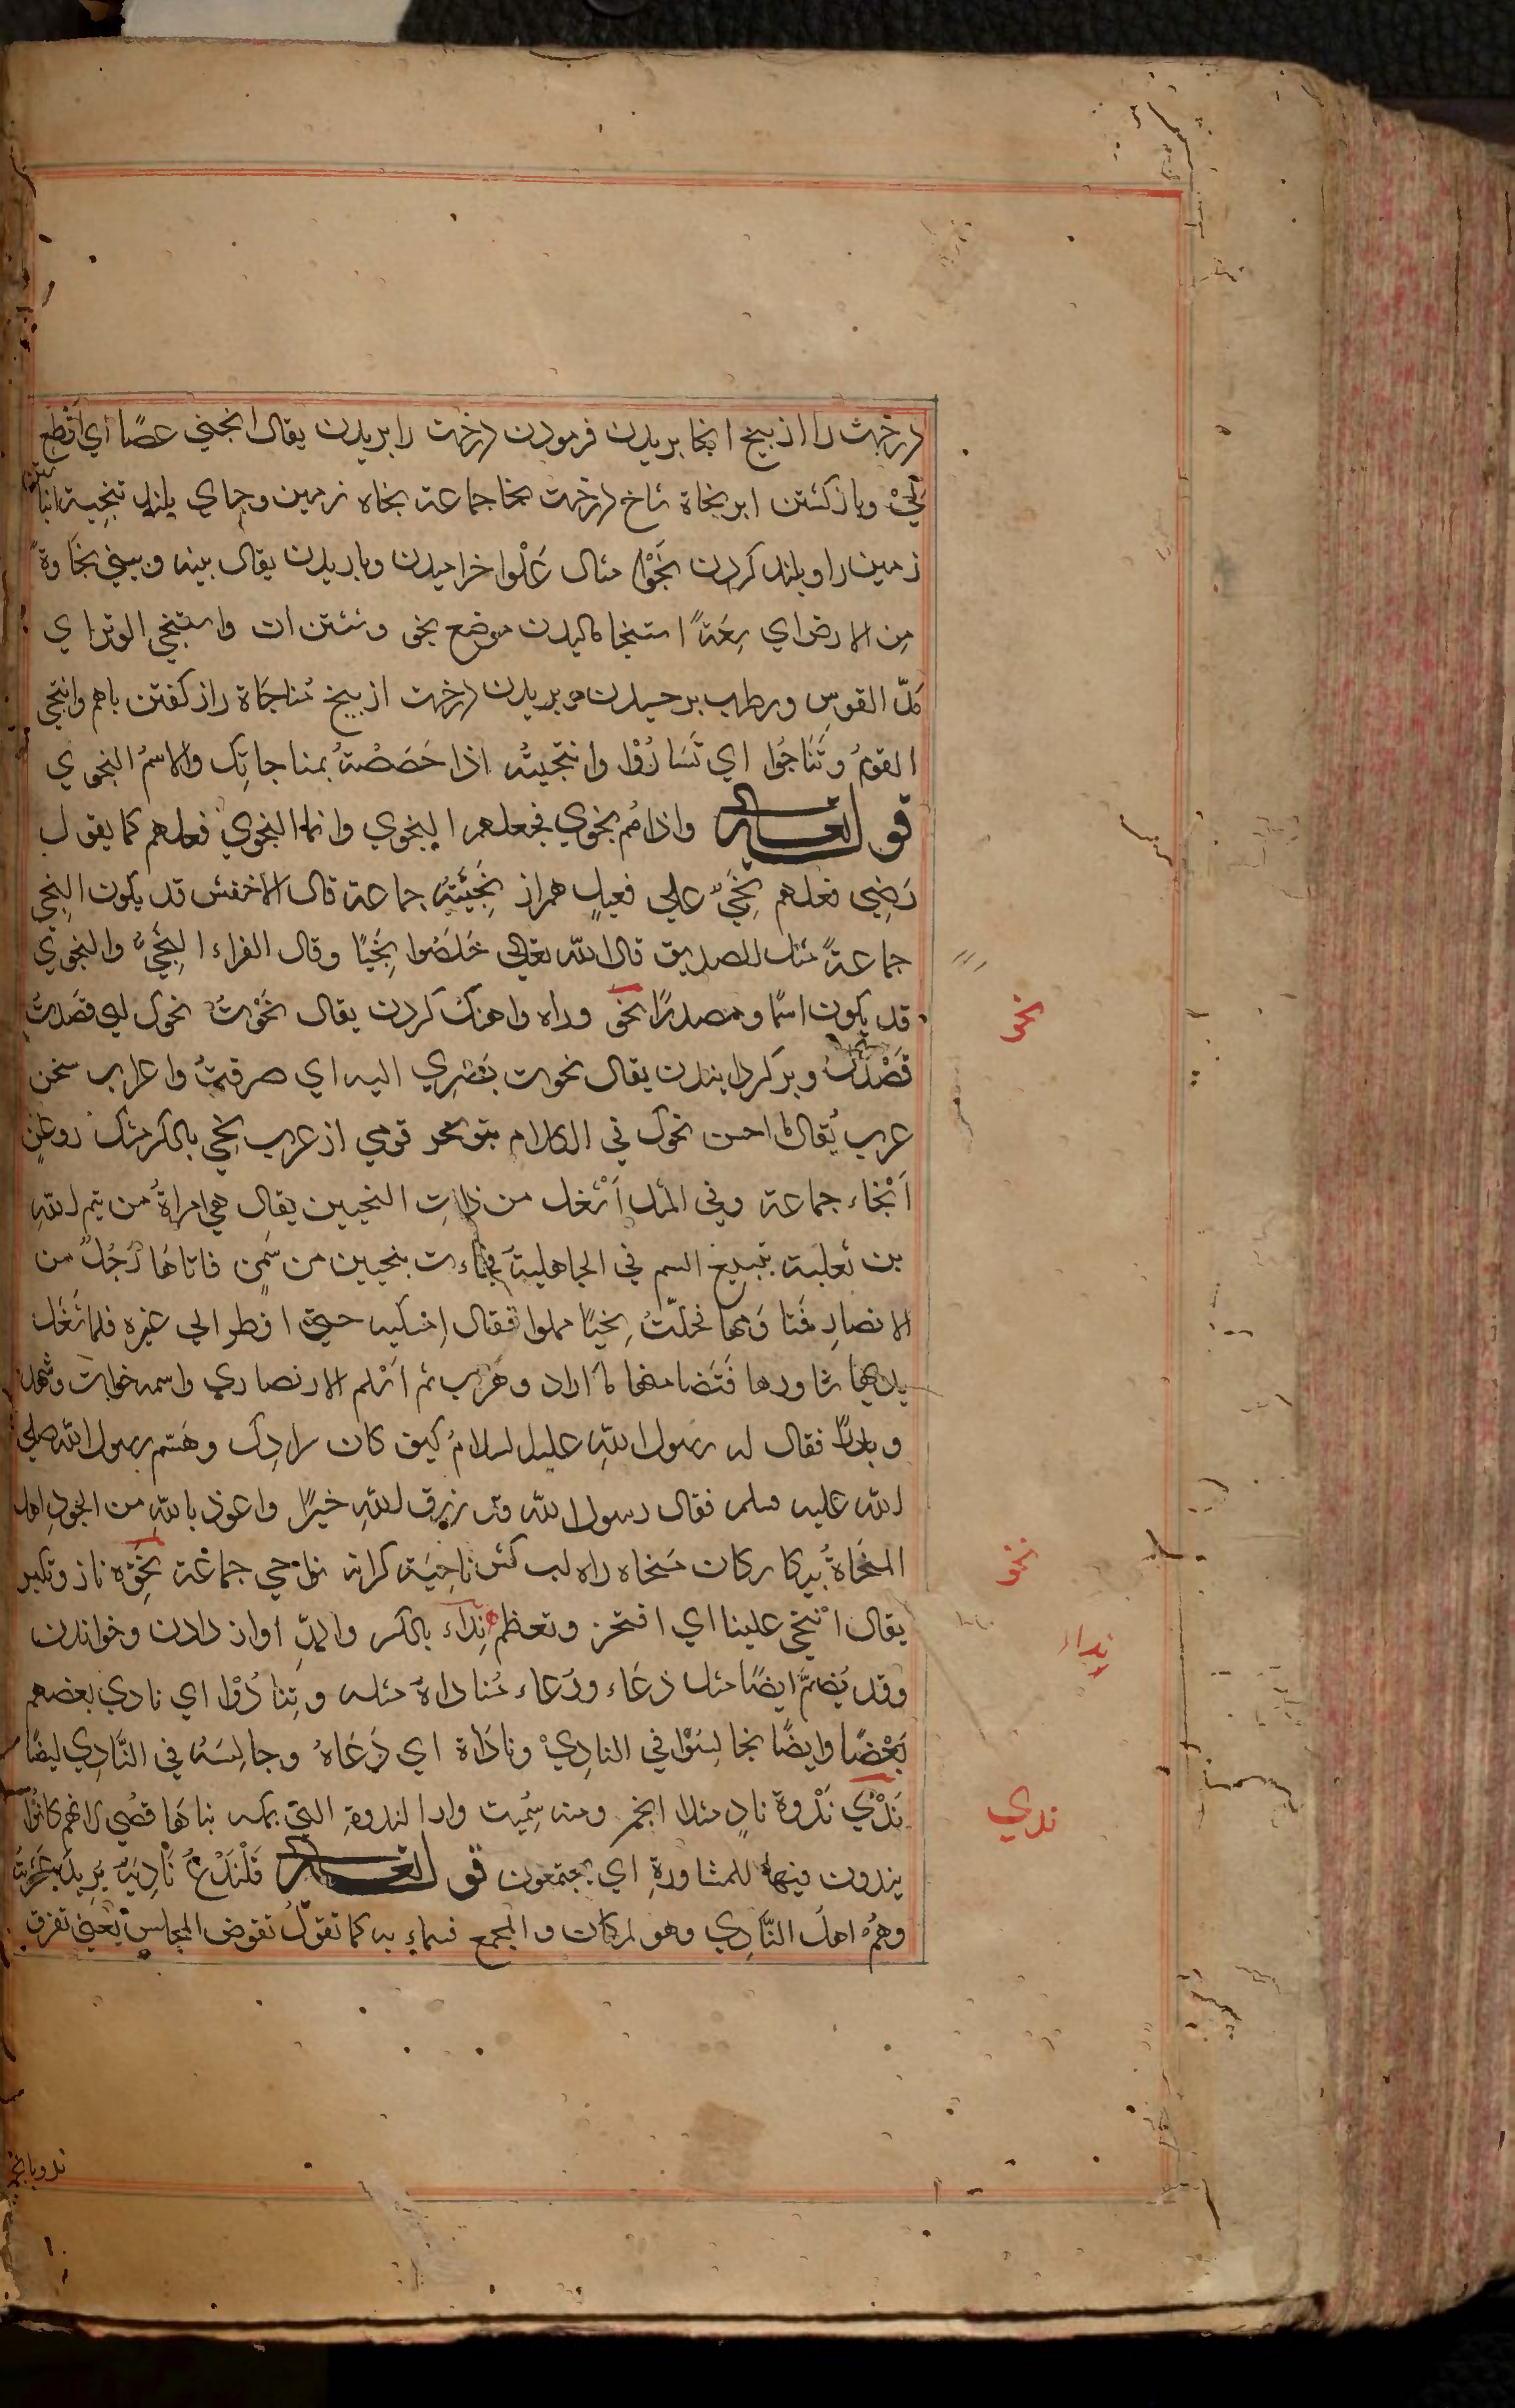 درخت را از بیخ انجا بریدن فرمودن درخت را بریدن یقال انجنی عصًا ای اقطع
لیْ وباز کشتن ابر نجاة شاخ درخت نجا جماعة نجاه زمین وجای بلند تنجیة
زمین را و بلند کردن نَجْوًا مثال عَلْوا خرامیدن وباریدن یقال بینه وبینی نجاوةً
مِن الارض ای سِعَةً استنجا مالیدن موضع نجی وشستن ات واستنجی الوتر ای
مدّ القوسِ ورطب برجیدن وبریدن درخت از بیخ مُناجَاة راز کفتن باهم وانتجی
القومُ وتَنَاجُوا ای تَسَارُوْا وانتجیتُه اذا خصَصْتَهُ بمناجاتِک والاسمُ النجوی
قوله تعالی واذ هُم نجوی فجعلهم النجوی وانما النجوی فعلهم کما یقول
رَضِیی فعلهم نَجِیّ علی فعیلٍ همراز نَجِیَّتِهُ جماعة قال الاخفش قد یکون النجی
جماعةً مثال الصدیق قال الله تعالی خَلَصُوا نَجِیًّا وقال الفراء النَجِیُّ والنجوی
قد یکون اسمًا ومصدرًا نحو وراه واهنک کردن یقال نَحَوْتُ نحوک ای قصدتُ
قَصْدَکَ وبر کردانیدن یقال نحوت بَصَرِی الیه ای صرفتُ واعراب سخن
عرب یُقال ما احسن نحوک فی الکلام بنو نحو قومی از عرب نِحی بالکسر مشک روغن
اَنْحَاء جماعة وفی المثل اَشْغل من ذاتِ النحیین یقال هی امراةٌ من تیم اللهِ
بن ثعلبة تبیع السم فی الجاهلیة فجاءت بنحیین من سَمنٍ فاتاها رَجُلٌ من
الانصارِ فسا وَمها فحَلّتْ نِحْیًا مملوا فقال اِمسکیه حتی انظر الی غیره فلما شَغَلَ
یدیها ساورها فَقَضا منها ما اراد وهَرَب ثم اَسْلم الانصاری واسمه خوات وشهد
وبدرًا فقال له رسول اللهِ علیه السلامُ کیف کان شرادک وهَتم رسول الله صلی
الله علیه وسلم فقال رسول الله قد رزق اللهِ خیرًا واعوذ باللهِ من الحور
المنحَاةُ بیرکا رکان مَنحاه راه لب کش ناحِیَة کرانه نواحی جماعة نَخوة ناز وتکبر
یقال انْتخی علینا ای افتخر وتعظم نِداء بالکسر والمدّ اواز دادن وخواندن
وقد یُضمّ ایضًا مثل دُعَاء ورُعاء مُناداةٌ مثله وتِنَادُوْا ای نادی بعضهم
بَعْضًا وایضًا تجالِسُوْا فی النادِیْ ونادَاهُ ای دَعَاهُ وجالِسَهُ فی النَّادِی ایضًا
نَدْیُ نَدْوة نادٍ مثله انجمن ومنه سُمِیت دار الندوةِ التی بمکه بناها قُصَی لانهم کانُوا
یندون فیها للمشاورةِ ای یجتمعون قوله تعالی فَلْیَدْعُ نَادِیَهُ یرید عَشیرته
وهُم اهل النَّادِی وهو المکان والمجمع فسماه به کما تقوُل تقوض المجلِس یَعنی تفرق
نحو
نخو
نِداء
ندی